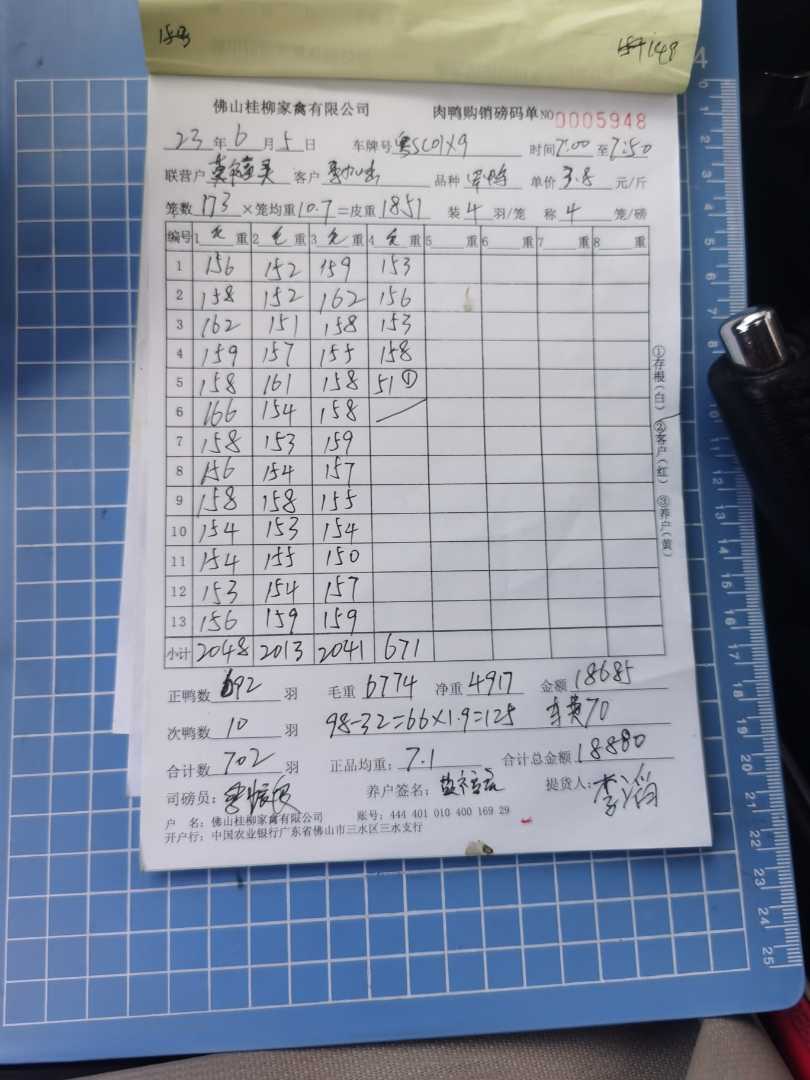 149
佛山桂柳家禽有限公司 肉鸭购销磅码单 NO 0005948
23年6月5日 车牌号 粤SC01X9 时间7:00至7:50
联营户 客户 品种 单价3.8元/斤
笼数173×笼均重10.7=皮重1851 装4羽/笼 称4笼/磅
编号 1毛重 2毛重 3毛重 4毛重 5重 6重 7重 8重
1 156 152 159 153
2 158 152 162 156
3 162 151 158 153
4 159 157 155 158
5 158 161 158 51①
6 166 154 158
7 158 153 159
8 156 154 157
9 158 158 155
10 154 153 154
11 154 155 150
12 153 154 157
13 156 159 159
小计 2048 2013 2041 671
正鸭数692羽 毛重6774 净重4917 金额18685
次鸭数10羽 98-32=66×1.9=125 车费70
合计数702羽 正品均重:7.1 合计总金额18880
司磅员: 养户签名: 提货人:
户 名:佛山桂柳家禽有限公司 账号:444 401 010 400 169 29
开户行:中国农业银行广东省佛山市三水区三水支行
①存根(白) ②客户(红) ③养户(黄)
4
0
1
2
3
4
5
6
7
8
9
10
11
12
13
14
15
16
17
18
19
20
21
22
23
24
25